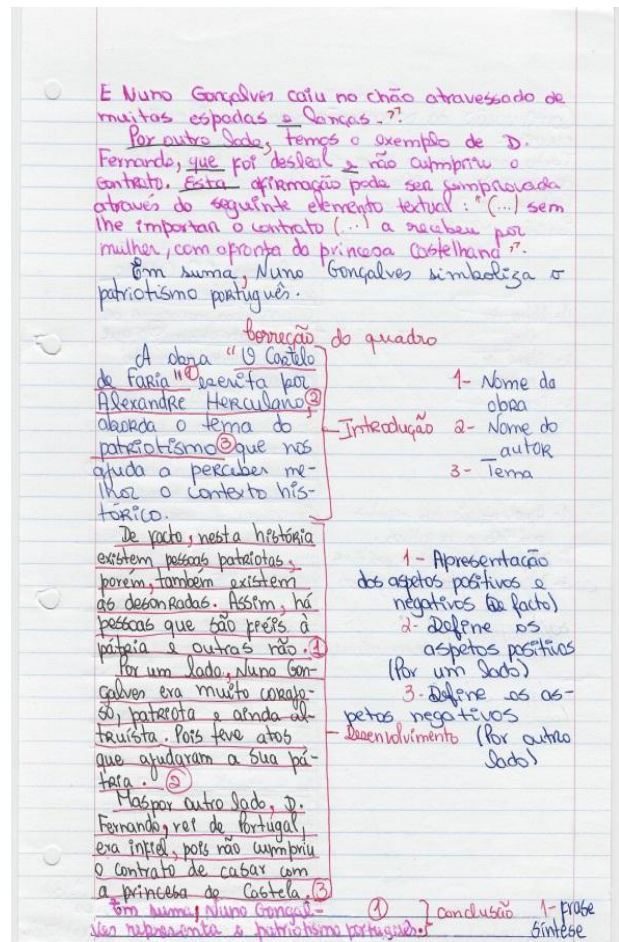 E Nuno Gonçalves caiu no chão atravessado de
muitas espadas e lanças."
Por outro lado, temos o exemplo de D.
Fernando, que foi desleal e não cumpriu o
contrato. Esta afirmação pode ser comprovada
através do seguinte elemento textual: "(...) sem
lhe importar o contrato (...) a recebeu por
mulher, com afronta da princesa Castelhana".
Em suma, Nuno Gonçalves simboliza o
patriotismo português.
Correção do quadro
A obra "O Castelo
de Faria" ① escrita por
Alexandre Herculano, ②
aborda o tema do
patriotismo ③ que nos
ajuda a perceber me-
lhor o contexto his-
tórico.
Introdução
1- Nome da
obra
2- Nome do
autor
3- Tema
De facto, nesta história
existem pessoas patriotas,
porém, também existem
as desonradas. Assim, há
pessoas que são fiéis à
pátria e outras não. ①
Por um lado, Nuno Gon-
çalves era muito corajo-
so, patriota e ainda al-
truísta. Pois teve atos
que ajudaram a sua pá-
tria. ②
Mas por outro lado, D.
Fernando, rei de Portugal,
era infiel, pois não cumpriu
o contrato de casar com
a princesa de Castela. ③
Desenvolvimento
1- Apresentação
dos aspetos positivos e
negativos (De facto)
2- Define os
aspetos positivos
(Por um lado)
3- Define os as-
petos negativos
(Por outro
lado)
Em suma, Nuno Gonçal-
ves representa o patriotismo português.
①
conclusão
1- frase
síntese